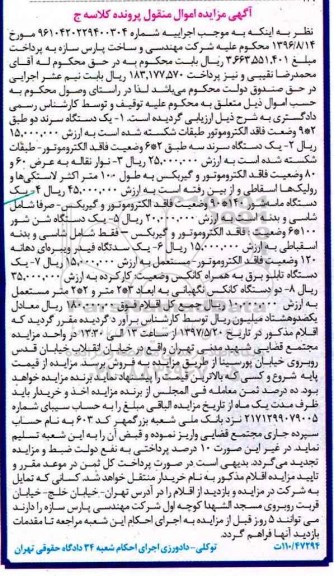 آگهی مزایده اموال منقول پرونده کلاسه ج
نظر به اینکه به موجب اجراییه شماره ۹۶۱۰۴۲۰۲۲۹۴۰۰۳۰۴ مورخ
۱۳۹۶/۸/۱۴ محکوم علیه شرکت مهندسی و ساخت پارس سازه به پرداخت
مبلغ ۳,۶۶۳,۵۵۱,۴۰۱ ریال بابت محکوم به در حق محکوم له آقای
محمدرضا نقیبی و نیز پرداخت ۱۸۳,۱۷۷,۵۷۰ ریال بابت نیم عشر اجرایی
در حق صندوق دولت محکوم می‌باشد لذا در راستای وصول محکوم به
حسب اموال ذیل متعلق به محکوم علیه توقیف و توسط کارشناس رسمی
دادگستری به شرح ذیل ارزیابی گردیده است. ۱- یک دستگاه سرند دو طبق
وضعیت فاقد الکتروموتور طبقات شکسته شده است به ارزش ۱۵,۰۰۰,۰۰۰
ریال ۲- یک دستگاه سرند سه طبق وضعیت فاقد الکتروموتور- طبقات
شکسته شده است به ارزش ۲۵,۰۰۰,۰۰۰ ریال ۳- نوار نقاله به عرض ۶۰ و
۸۰ وضعیت فاقد الکتروموتور و گیربکس به طول ۱۰۰ متر اکثر لاستکی‌ها و
رولیک‌ها اسقاطی و از بین رفته است به ارزش ۴۵,۰۰۰,۰۰۰ ریال ۴- یک
دستگاه ماسه‌شور وضعیت فاقد الکتروموتور و گیربکس- صرفا شامل
شاسی و بدنه به ارزش ۲۰,۰۰۰,۰۰۰ ریال ۵- یک دستگاه شن شور
وضعیت: فاقد الکتروموتور و گیربکس – فقط شامل شاسی و بدنه
اسقاطی به ارزش ۱۵,۰۰۰,۰۰۰ ریال ۶- یک دستگاه فیدر ویبره‌ای دهانه
۱۲۰ وضعیت فاقد الکتروموتور- مستعمل به ارزش ۱۵,۰۰۰,۰۰۰ ریال ۷- یک
دستگاه تابلو برق به همراه کانکس وضعیت: کارکرده به ارزش ۳۵,۰۰۰,۰۰۰
ریال ۸- دو دستگاه کانکس نگهبانی به ابعاد ۲@۳ متر و ۲@۲ متر مستعمل
به ارزش ۱۰,۰۰۰,۰۰۰ ریال جمع کل اقلام فوق ۱۸۰,۰۰۰,۰۰۰ ریال معادل
یکصدوهشتاد میلیون ریال توسط کارشناس برآورد گردیده مقرر گردید که
اقلام مذکور در تاریخ ۱۳۹۷/۵/۲۰ از ساعت ۱۳ الی ۱۳:۳۰ در واحد مزایده
مجتمع قضایی شهید مدنی تهران واقع در خیابان انقلاب خیابان قدس
روبروی خیابان پورسینا از طریق مزایده به فروش برسد. مزایده از قیمت
پایه شروع و کسی که بالاترین قیمت را پیشنهاد نماید برنده مزایده خواهد
بود. ده درصد ثمن معامله فی المجلس از برنده مزایده اخذ و خریدار باید
ظرف مدت یک ماه از تاریخ مزایده الباقی مبلغ را به حساب سیبای شماره
۲۱۷۱۲۹۹۰۷۹۰۰۵ نزد بانک ملی شعبه بزرگمهر کد ۶۰۳ به نام حساب
سپرده جاری مجتمع قضایی واریز نموده و قبض آن را به این شعبه تسلیم
نماید. در غیر این صورت ۱۰ درصد پرداختی به نفع دولت ضبط و مزایده
تجدید می‌گردد. بدیهی است در صورت پرداخت کل ثمن در موعد مقرر و
تایید مزایده اقلام مذکور به نام خریدار منتقل خواهد شد. کسانی که تمایل
به شرکت در مزایده و بازدید از اقلام را در آدرس تهران- خیابان خلج- خیابان
قربت روبروی مسجد الشهدا کوچه اول شرکت مهندسی پارس سازه را دارند
می توانند ۵ روز قبل از مزایده به اجرای احکام این شعبه مراجعه تا مقدمات
بازدید آنها فراهم گردد.
۱۱۰/۴۷۲۹۴ت
توکلی- دادورزی اجرای احکام شعبه ۳۴ دادگاه حقوقی تهران